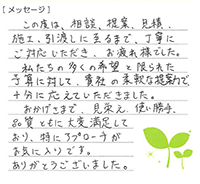 [メッセージ]
この度は、相談、提案、見積、
施工、引渡しに至るまで、丁寧に
ご対応いただき、お疲れ様でした。
私たちの多くの希望と限られた
予算に対して、貴社の柔軟な提案力で、
十分に応えていただきました。
おかげさまで、見栄え、使い勝手、
品質ともに大変満足して
おり、特にラブローチが
お気に入りです。
ありがとうございました。